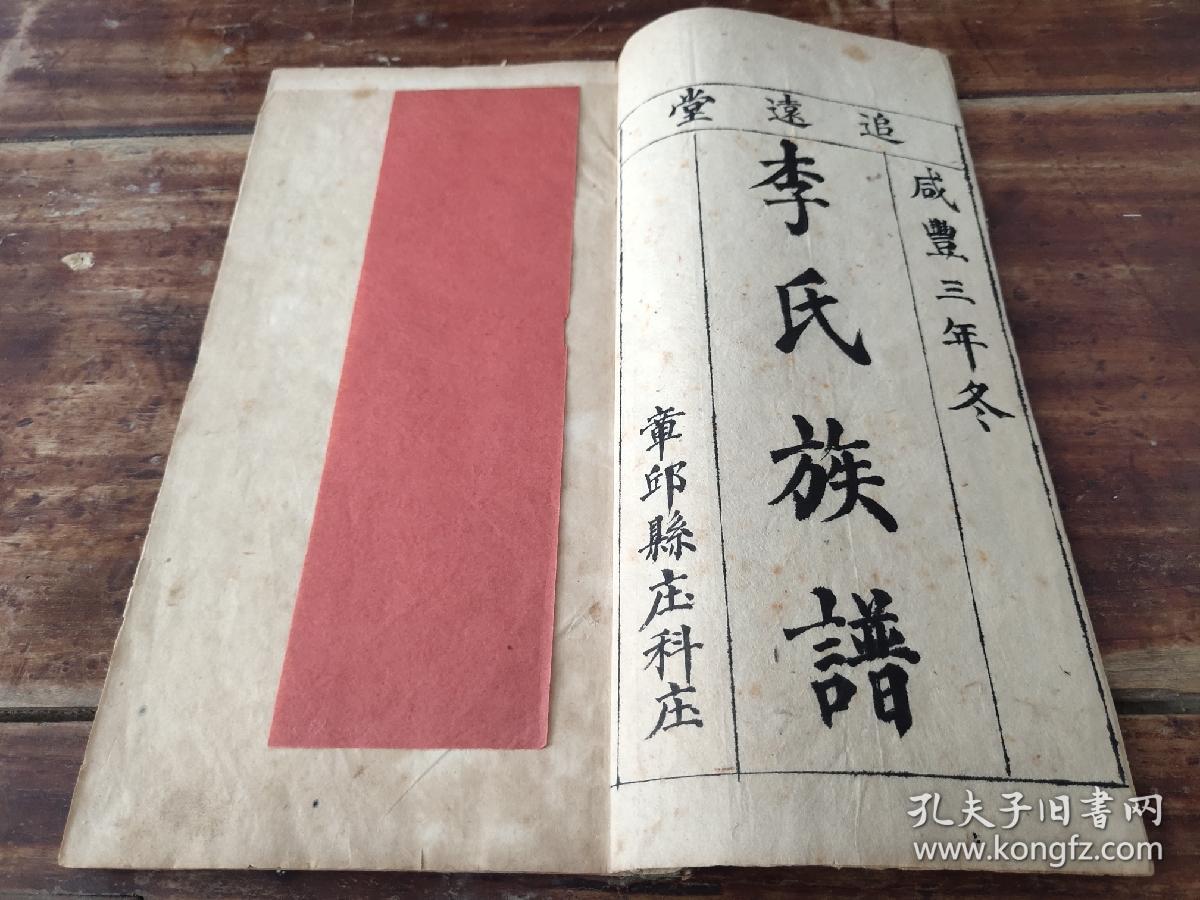 追遠堂
咸豐三年冬
李氏族譜
章邱縣庄科庄
孔夫子旧書网
www.kongfz.com